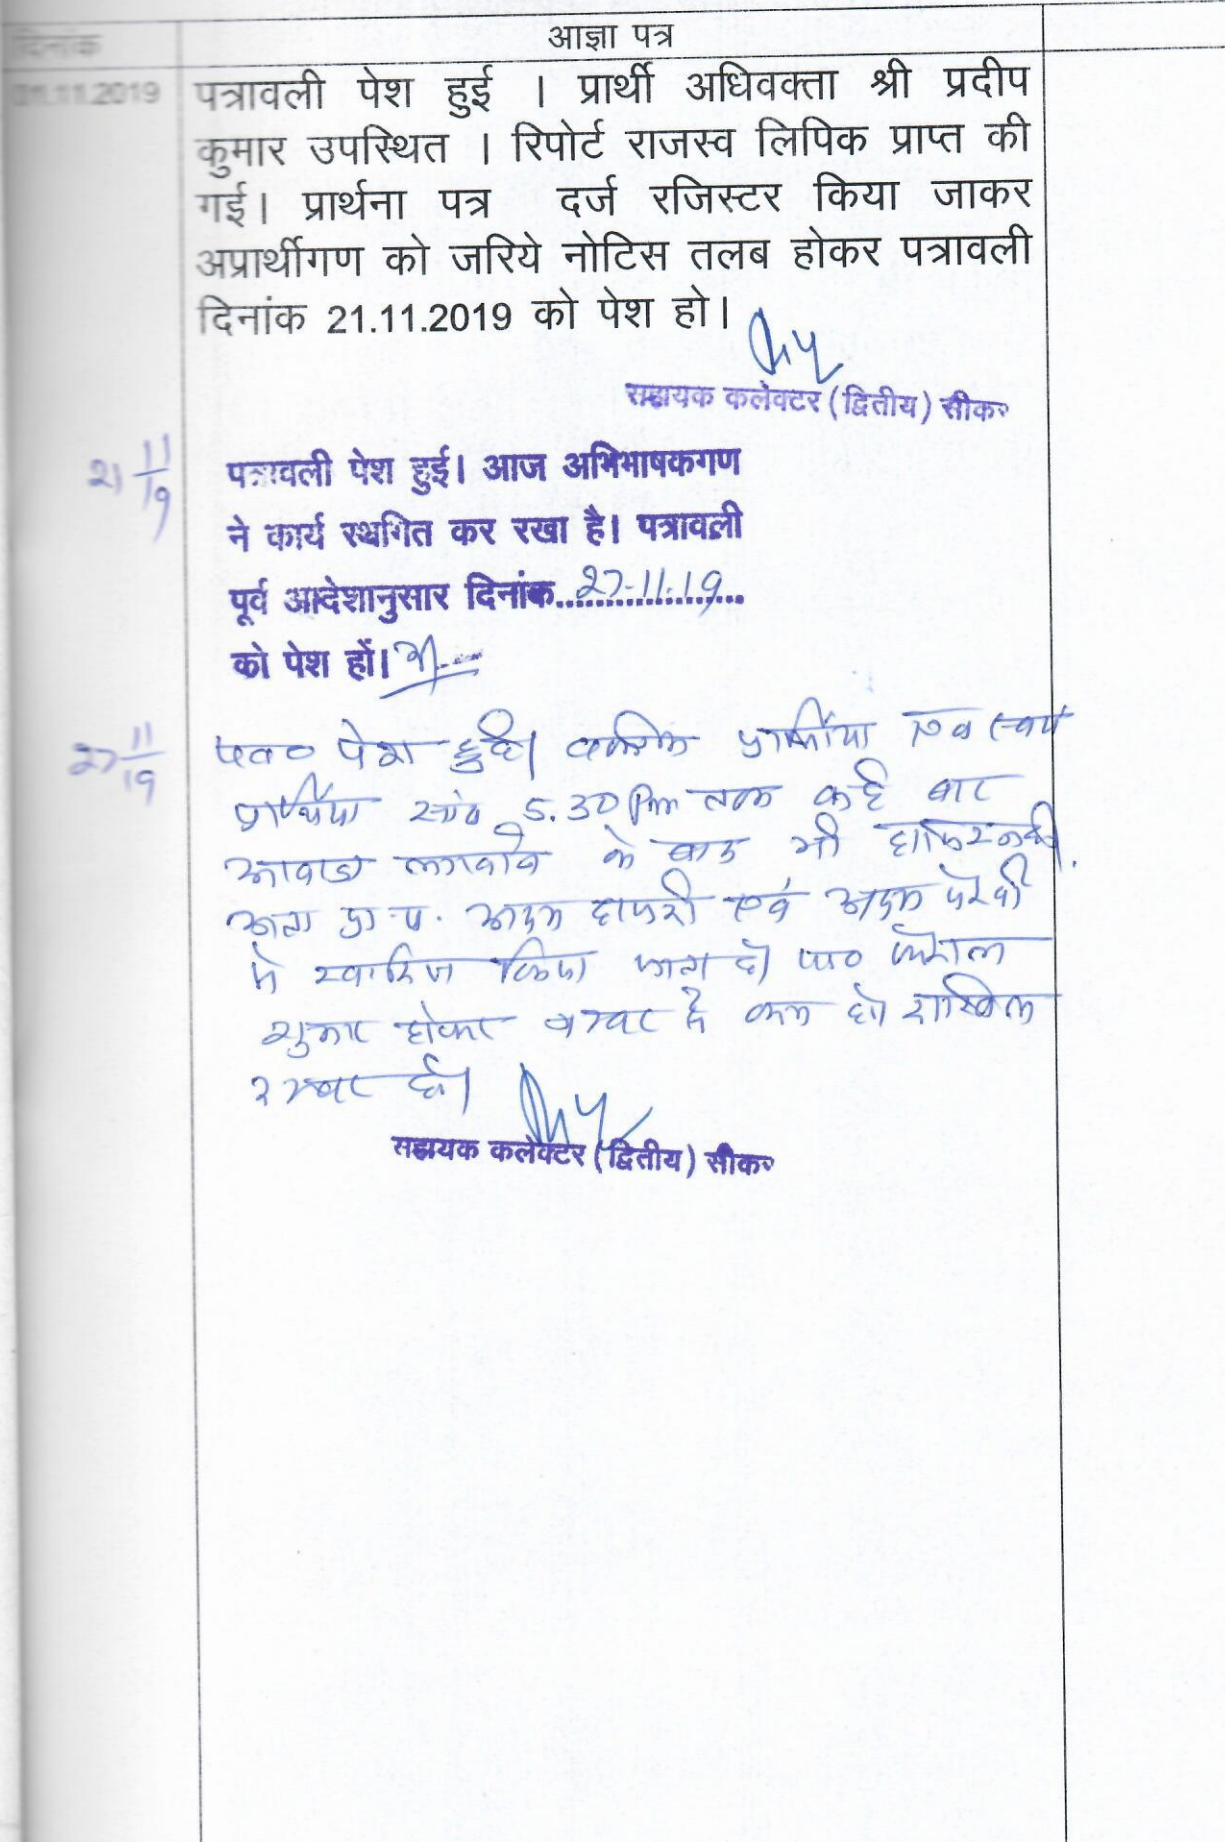 दिनांक
आज्ञा पत्र
01.11.2019
पत्रावली पेश हुई । प्रार्थी अधिवक्ता श्री प्रदीप
कुमार उपस्थित । रिपोर्ट राजस्व लिपिक प्राप्त की
गई। प्रार्थना पत्र दर्ज रजिस्टर किया जाकर
अप्रार्थीगण को जरिये नोटिस तलब होकर पत्रावली
दिनांक 21.11.2019 को पेश हो।
सहायक कलेक्टर (द्वितीय) सीकर
21 11/19
पत्रावली पेश हुई। आज अभिभाषकगण
ने कार्य स्थगित कर रखा है। पत्रावली
पूर्व आदेशानुसार दिनांक 27-11-19
को पेश हों।
27 11/19
पत्रा० पेश हुई। वकील प्रार्थीया एवं स्वयं
प्रार्थीया सायं 5.30 Pm तक कई बार
आवाज लगवाने के बाद भी हाजिर नहीं
अतः प्रा. प. अदम हाजरी एवं अदम पैरवी
में खारिज किया जाता है। पत्रा० फैसल
शुमार होकर नम्बर से कम हो दाखिल
दफ्तर हो।
सहायक कलेक्टर (द्वितीय) सीकर